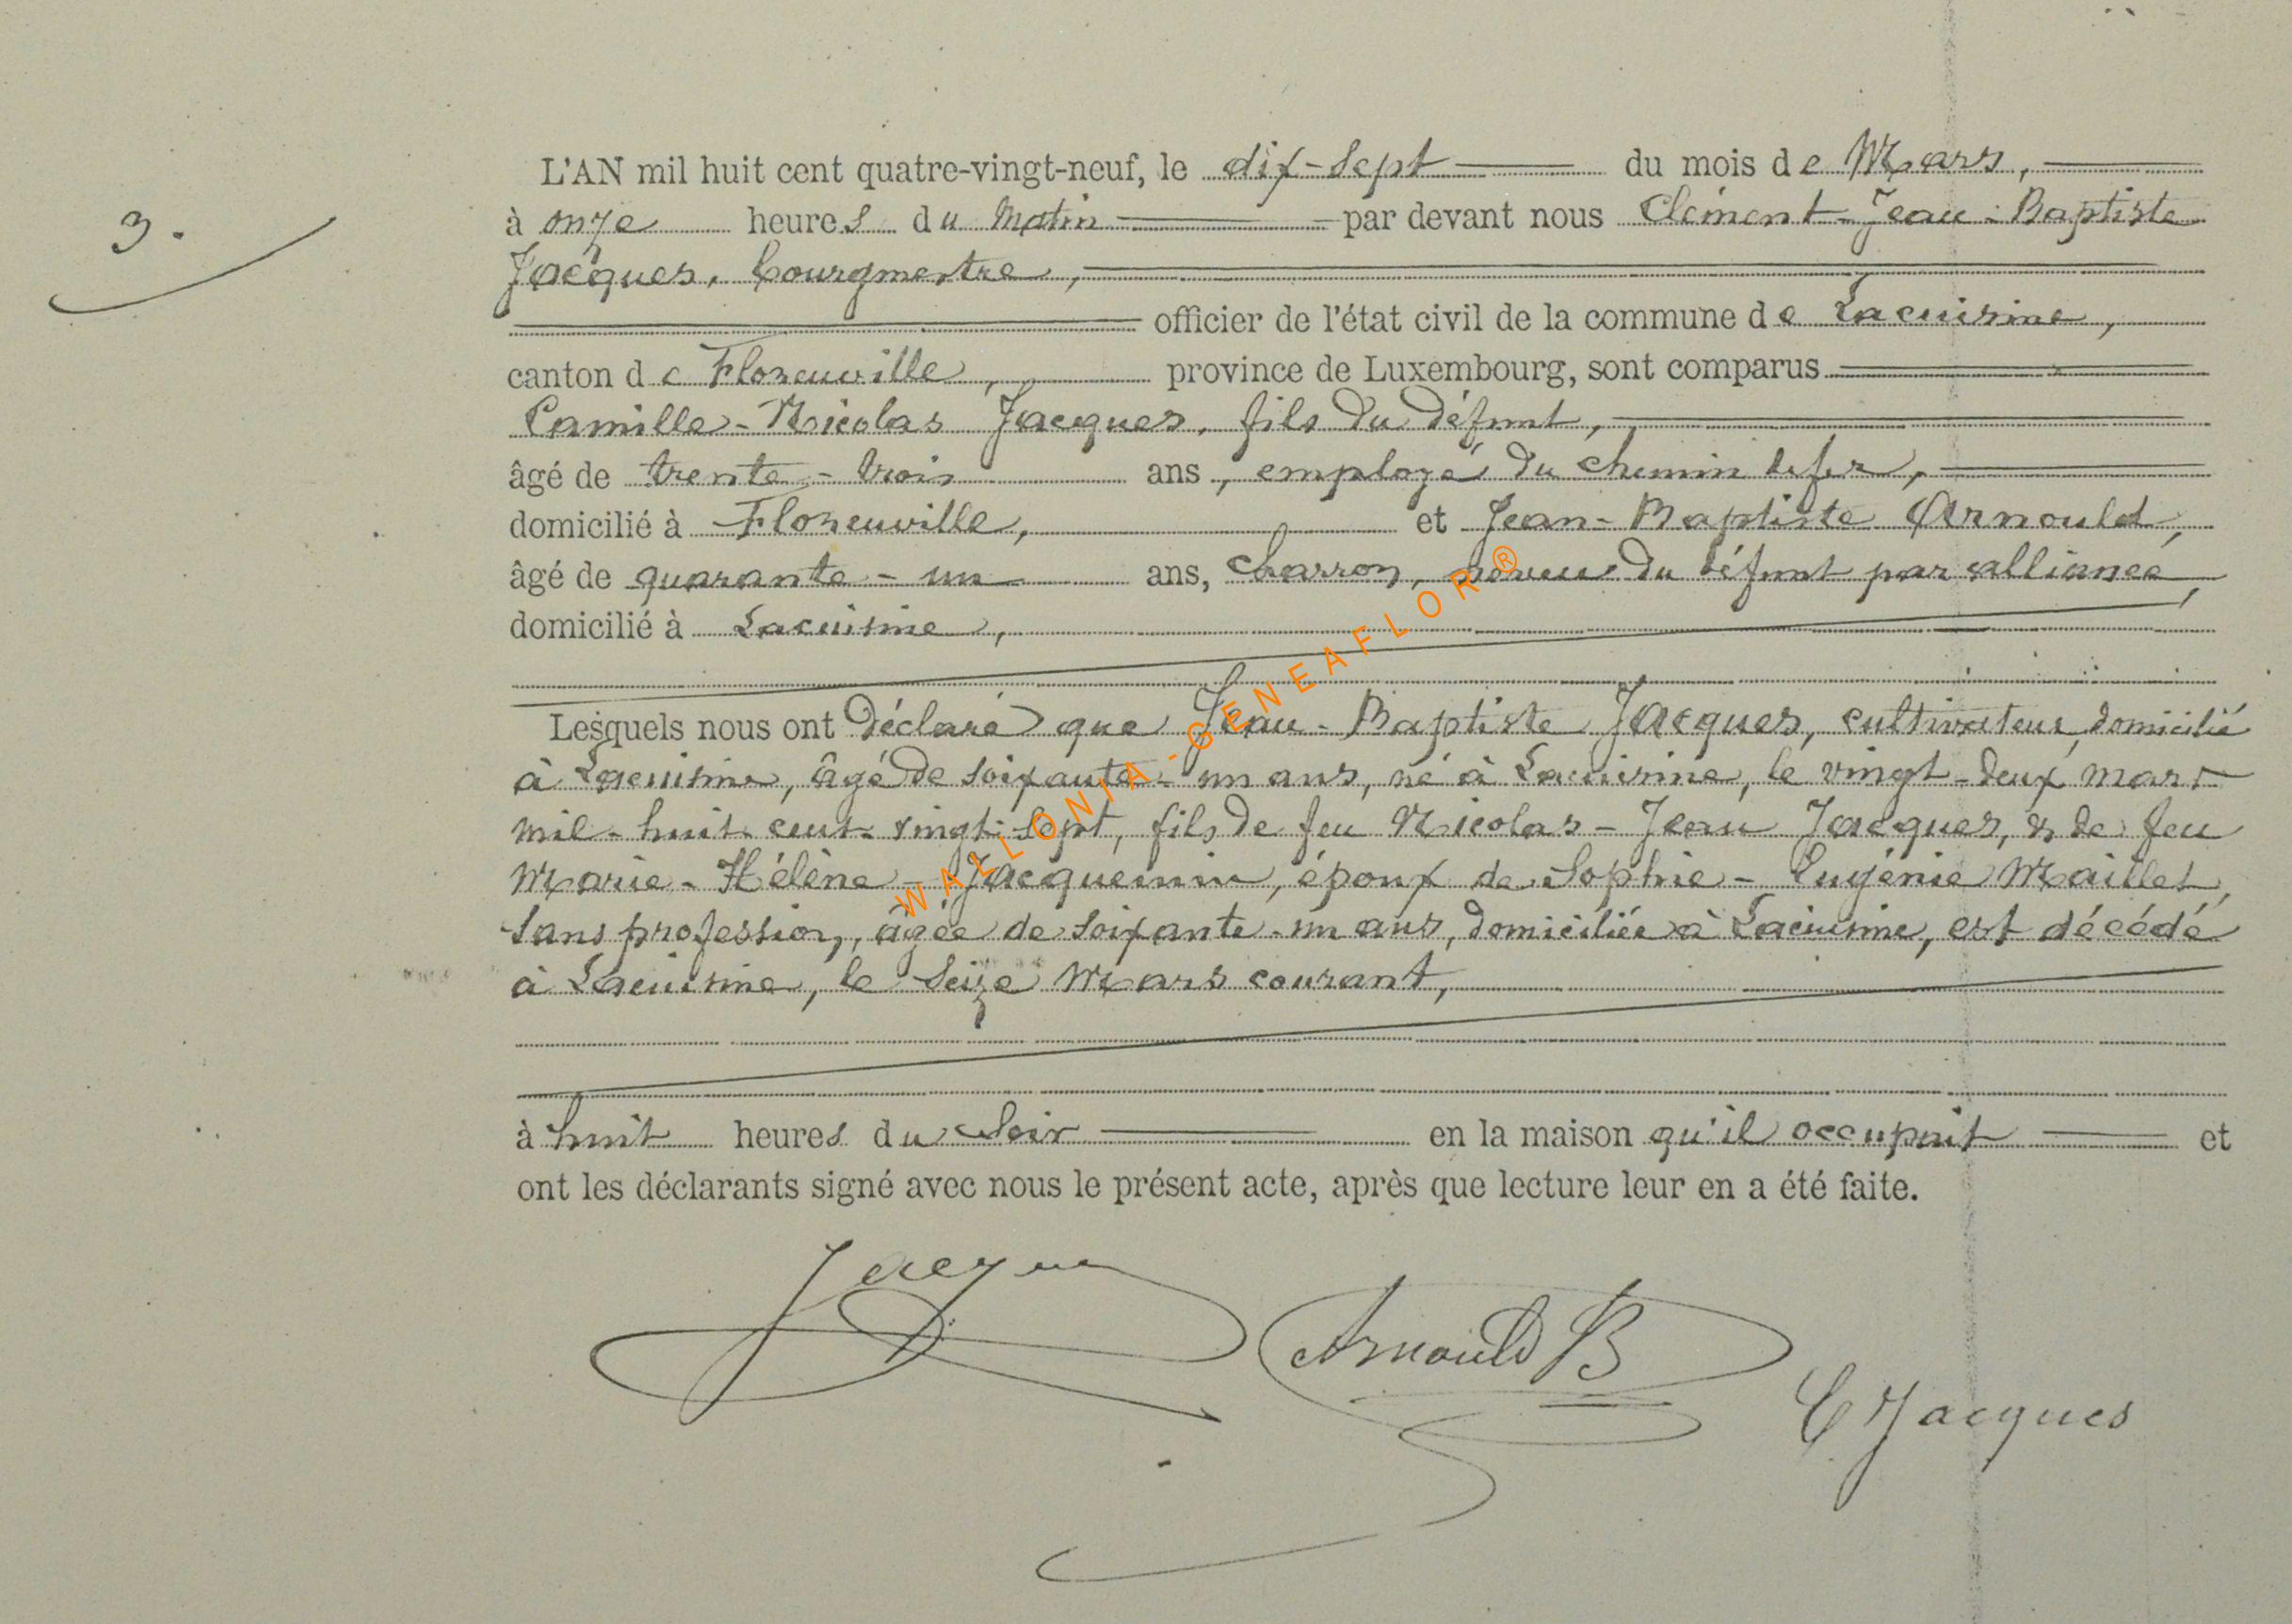 3.
L'AN mil huit cent quatre-vingt-neuf, le dix-sept du mois de Mars,
à onze heures du matin par devant nous Clément-Jean-Baptiste
Jacques, bourgmestre,
officier de l'état civil de la commune de Lacuisine,
canton de Florenville, province de Luxembourg, sont comparus
Camille-Nicolas Jacques, fils du défunt,
âgé de trente-trois ans, employé du chemin de fer,
domicilié à Florenville, et Jean-Baptiste Arnould,
âgé de quarante-un ans, charron, neveu du défunt par alliance,
domicilié à Lacuisine,
Lesquels nous ont déclaré que Jean-Baptiste Jacques, cultivateur, domicilié
à Lacuisine, âgé de soixante-un ans, né à Lacuisine, le vingt-deux mars
mil-huit-cent-vingt-sept, fils de feu Nicolas-Jean Jacques, & de feu
Marie-Hélène-Jacquemin, époux de Sophie-Eugénie Maillet,
sans profession, âgée de soixante-un ans, domiciliée à Lacuisine, est décédé
à Lacuisine, le seize Mars courant,
à huit heures du soir en la maison qu'il occupait et
ont les déclarants signé avec nous le présent acte, après que lecture leur en a été faite.
Jacques
Arnould B
C Jacques
WALLONIA-GENEAFLOR®